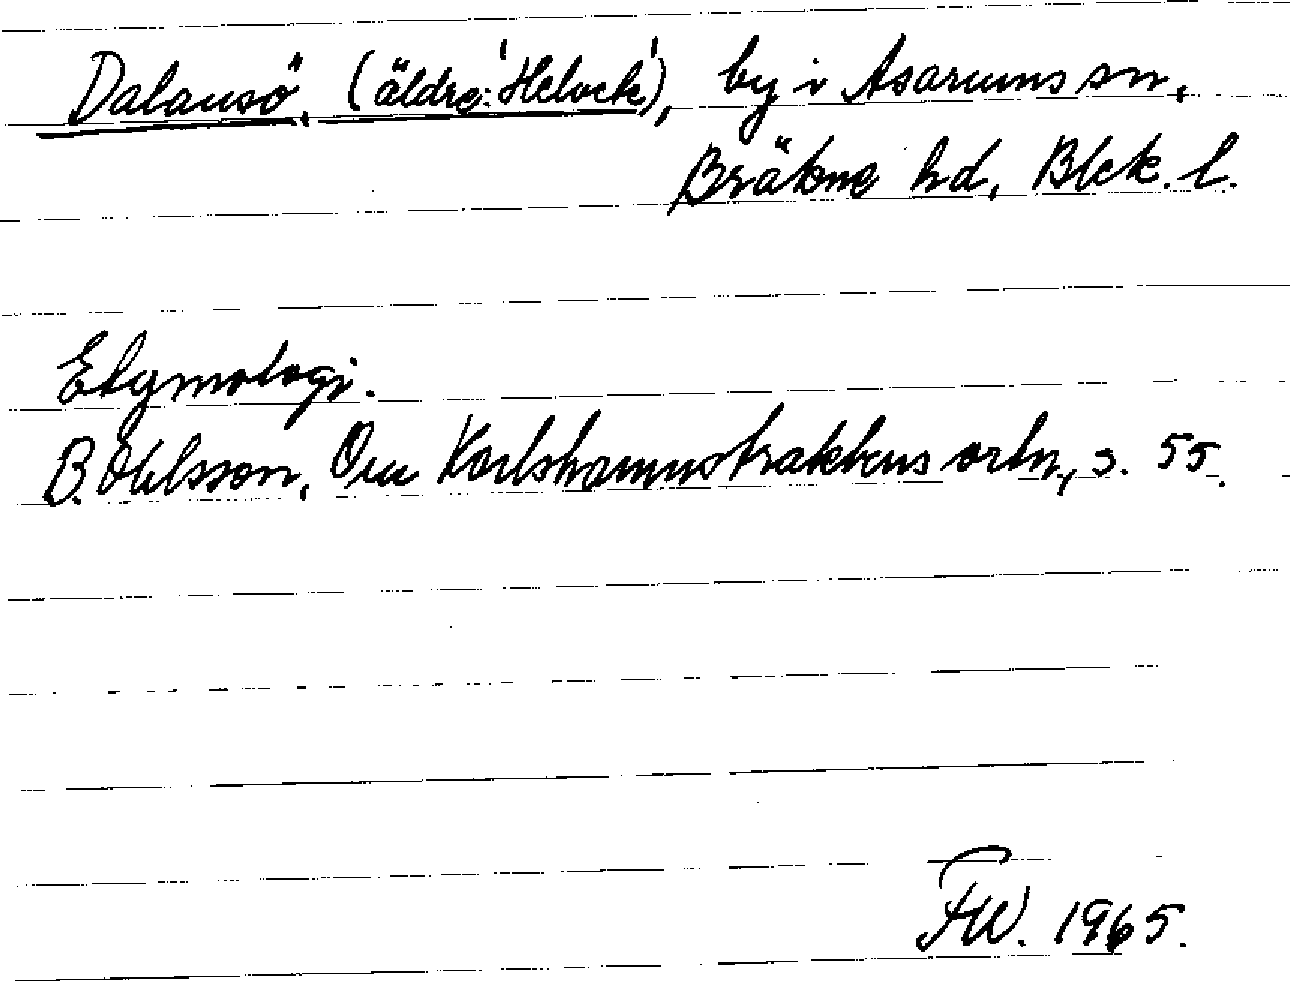 Dalausö, (äldre: 'Helock'), by i Asarums sn,
Bräkne hd, Blek. l.
Etymologi.
B. Ohlsson, Om Karlshamnstraktens ortn, s. 55.
FW. 1965.